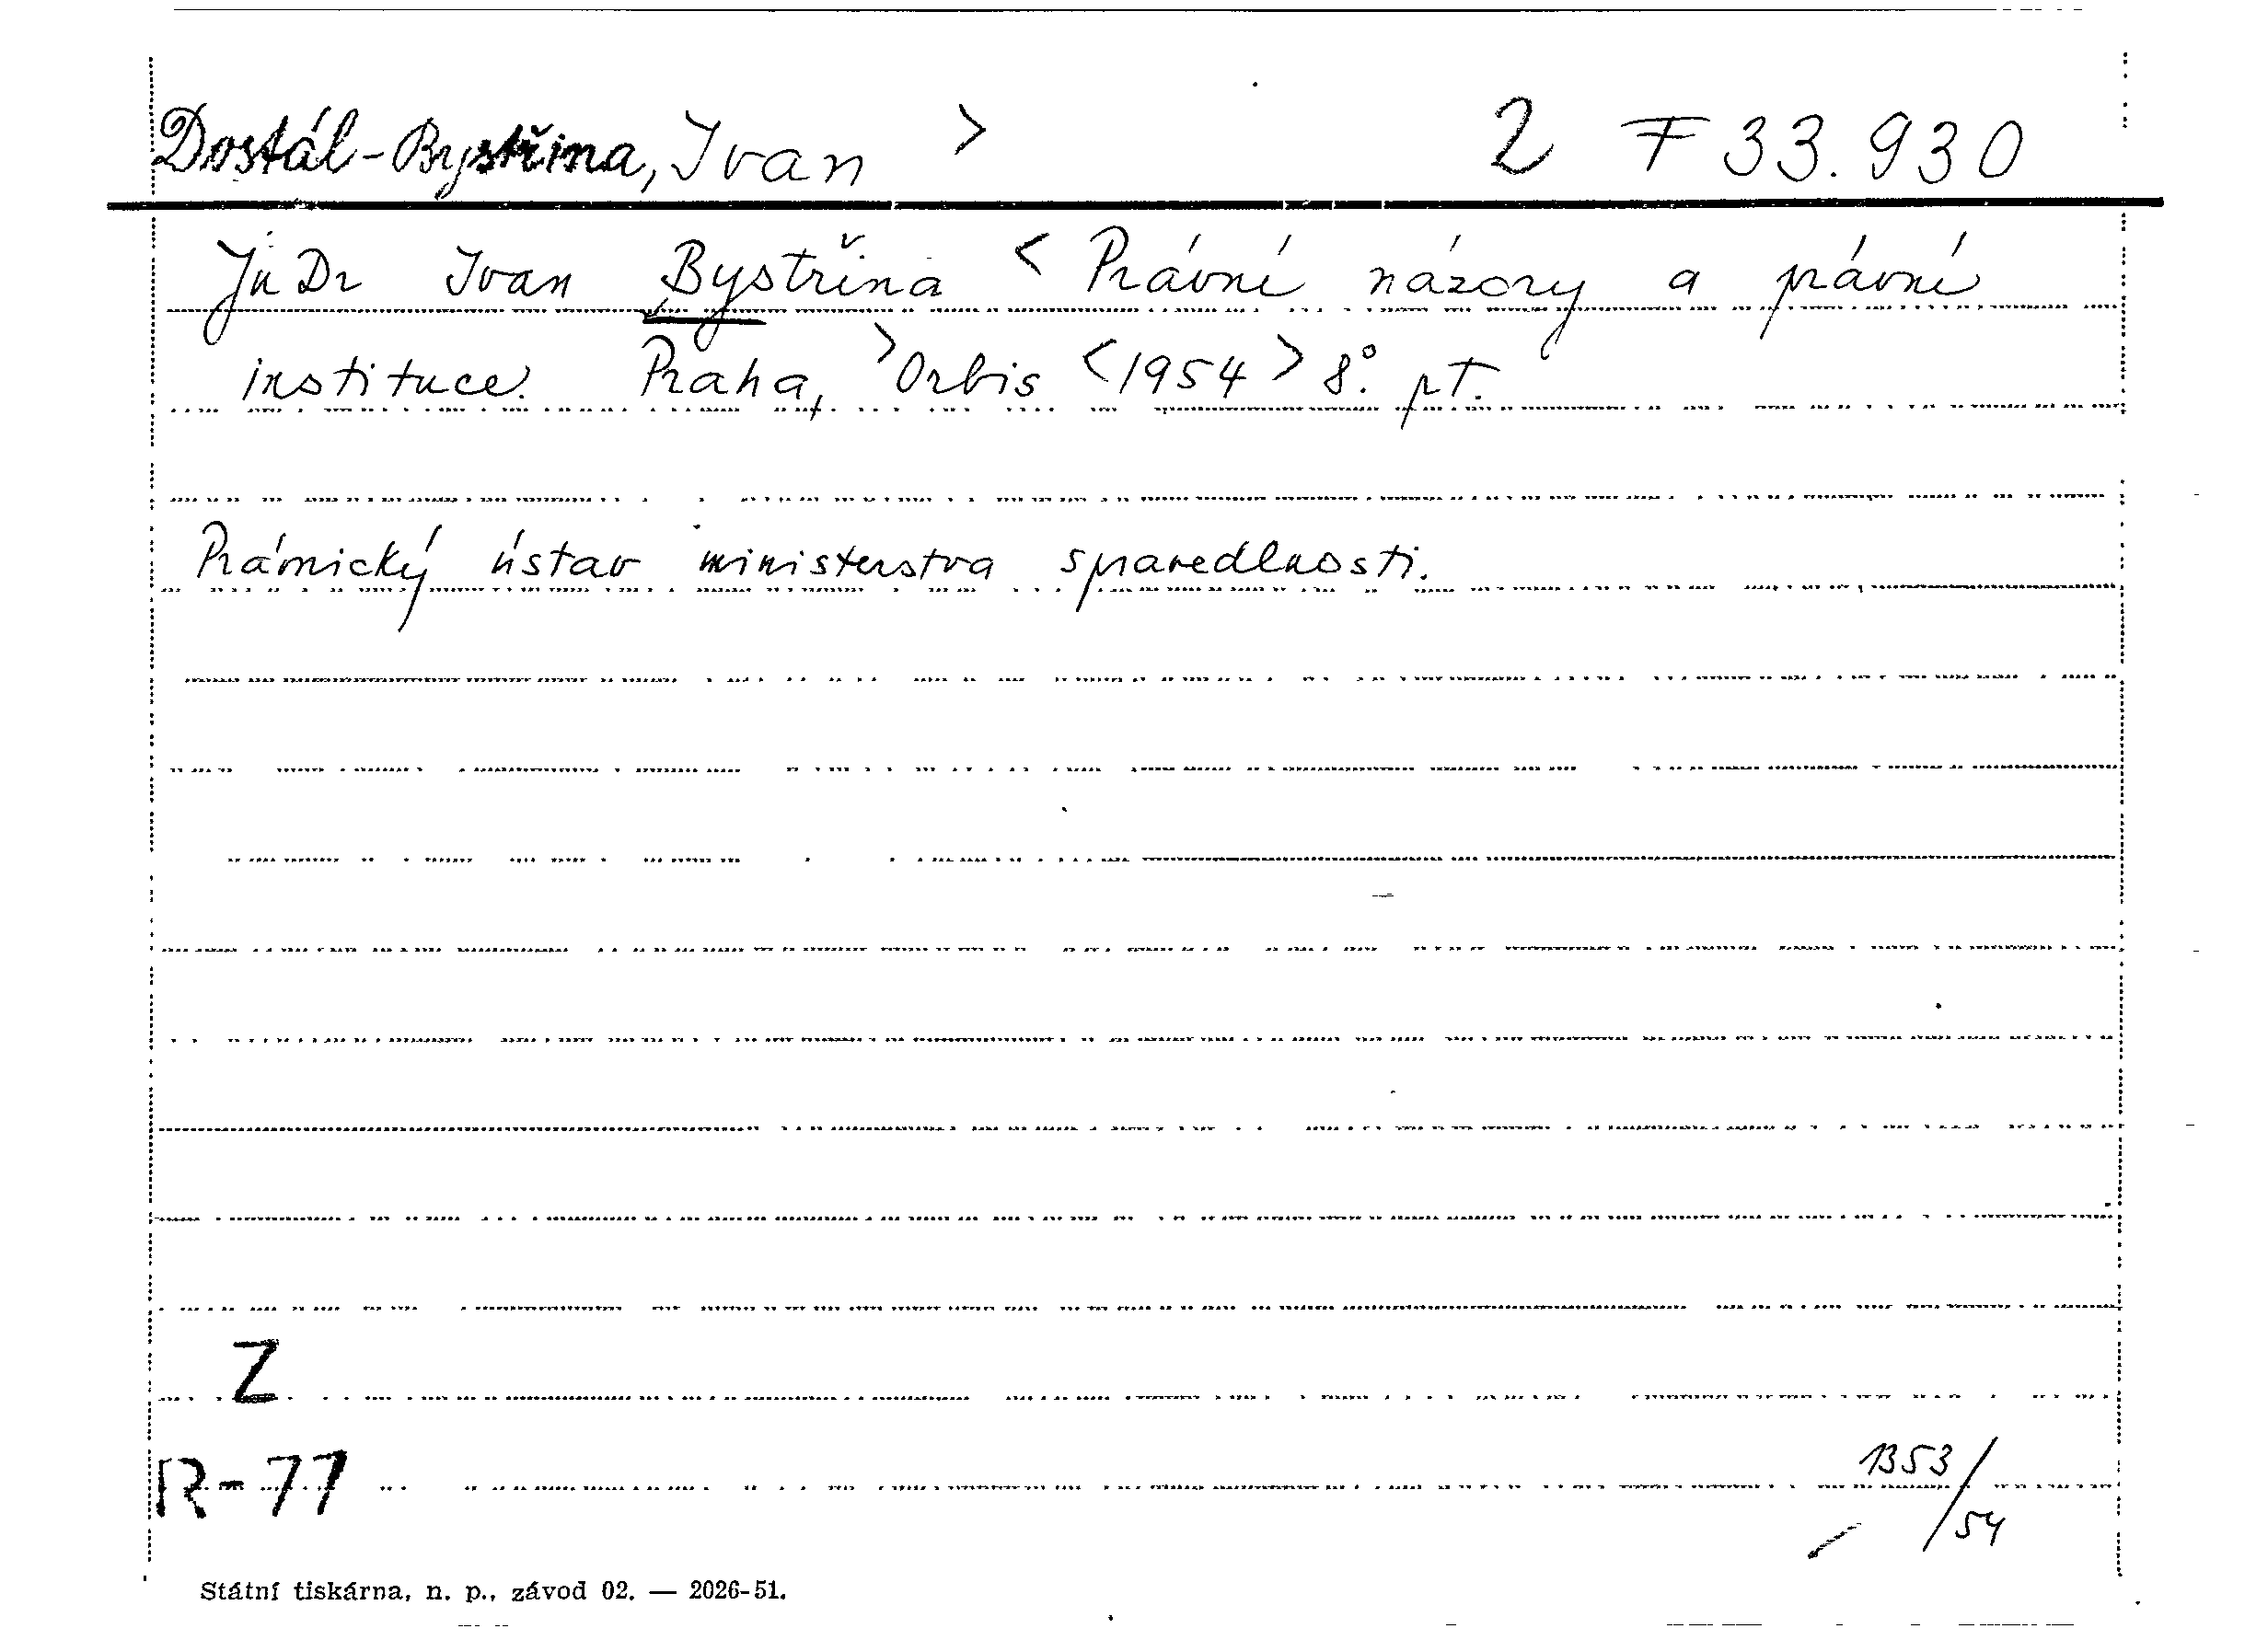 Dostál-Bystřina, Ivan > 2 F 33.930
JuDr Ivan Bystřina < Právní názory a právní
instituce. Praha, > Orbis < 1954 > 8°. pt.
Právnický ústav ministerstva spravedlnosti.
Z
R-77
1353/54
Státní tiskárna, n. p., závod 02. — 2026-51.